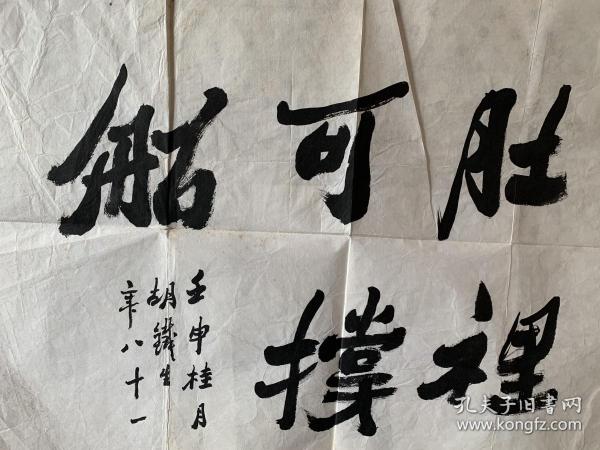 肚裡
可撑
船
壬申桂月
胡鐵生
年八十一
孔夫子旧书网
www.kongfz.com